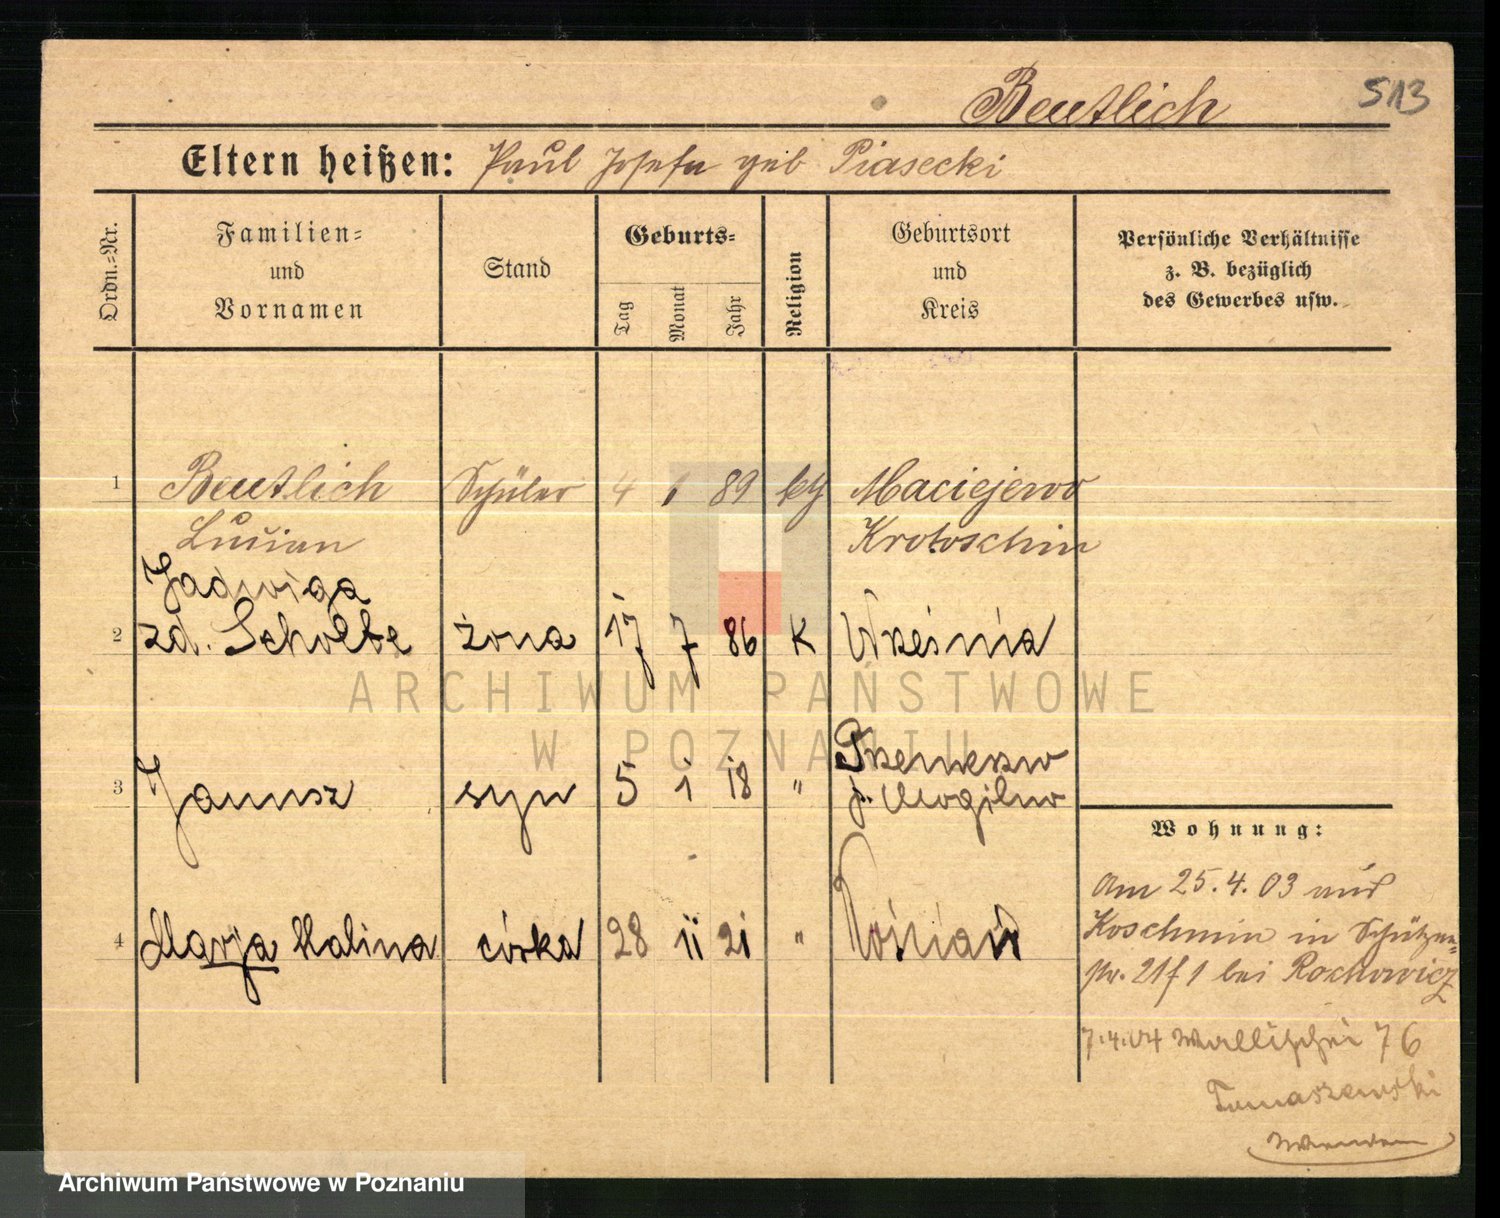 Beutlich 513
Eltern heißen: Paul Josefa geb Piasecki
Ordn.-Nr.
Familien-
und
Vornamen
Stand
Geburts-
Tag
Monat
Jahr
Religion
Geburtsort
und
Kreis
Persönliche Verhältnisse
z. B. bezüglich
des Gewerbes usw.
1 Beutlich Schüler 4 1 89 kth Maciejewo
Lucian Krotoschin
Jadwiga
2 zd. Scholbe żona 17 7 86 K Września
Trzemeszno
3 Janusz syn 5 1 18 " p. Mogilno
Wohnung:
4 Marja Halina córka 28 11 21 " Poznań
Am 25.4.03 aus
Koschmin in Schützen-
str. 21 f 1 bei Rochowicz
7.4.04 Wallischei 76
Tomaszewski
ARCHIWUM PAŃSTWOWE
W POZNANIU
Archiwum Państwowe w Poznaniu